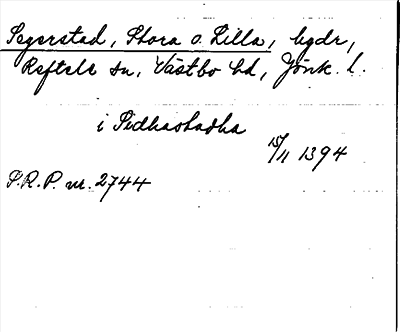 Segerstad, Stora o. Lilla, bydr,
Reftele sn, Västbo hd, Jönk. l.
i Sidhastadha
15/11 1394
S.R.P. nr. 2744